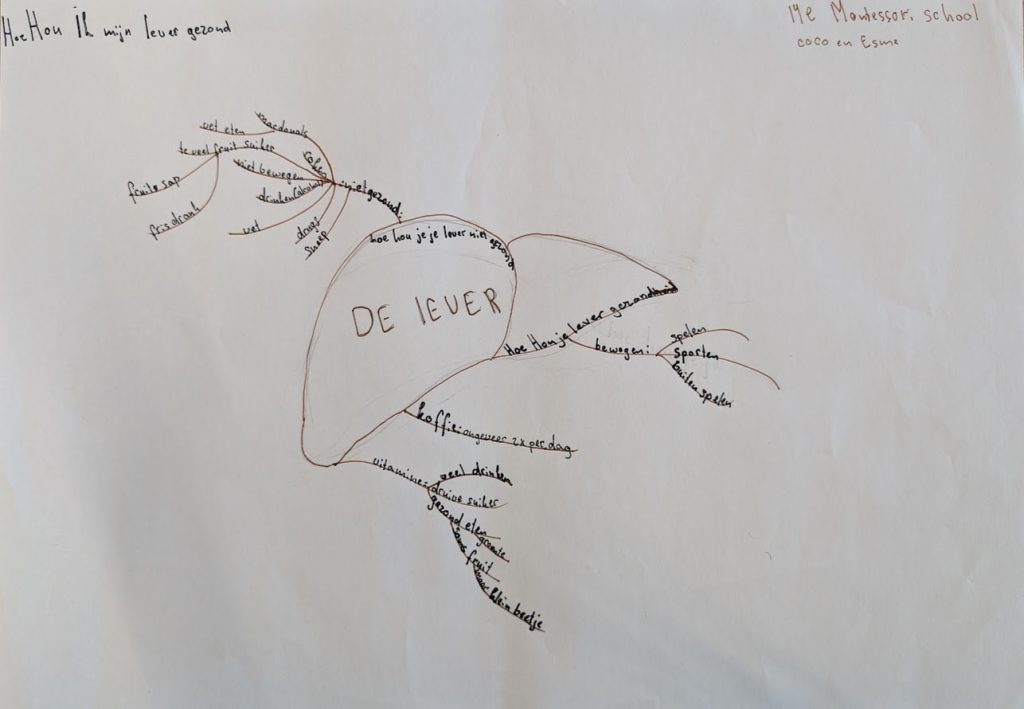 Hoe Hou Ik mijn lever gezond
14e Montessori school
coco en Esme
macdonals
vet eten
te veel fruit suiker
roken
niet bewegen
niet gezond:
fruite sap
drinken(alcohol)
fris drank
vet
drugs
snoep
hoe hou je je lever niet gezond
DE lEVER
Hoe Hou je lever gezond
bewegen:
spelen
sporten
buiten spelen
koffie: ongeveer 2x per dag
vitamine:
veel drinken
druive suiker
gezond eten
groente
fruit
klein beetje